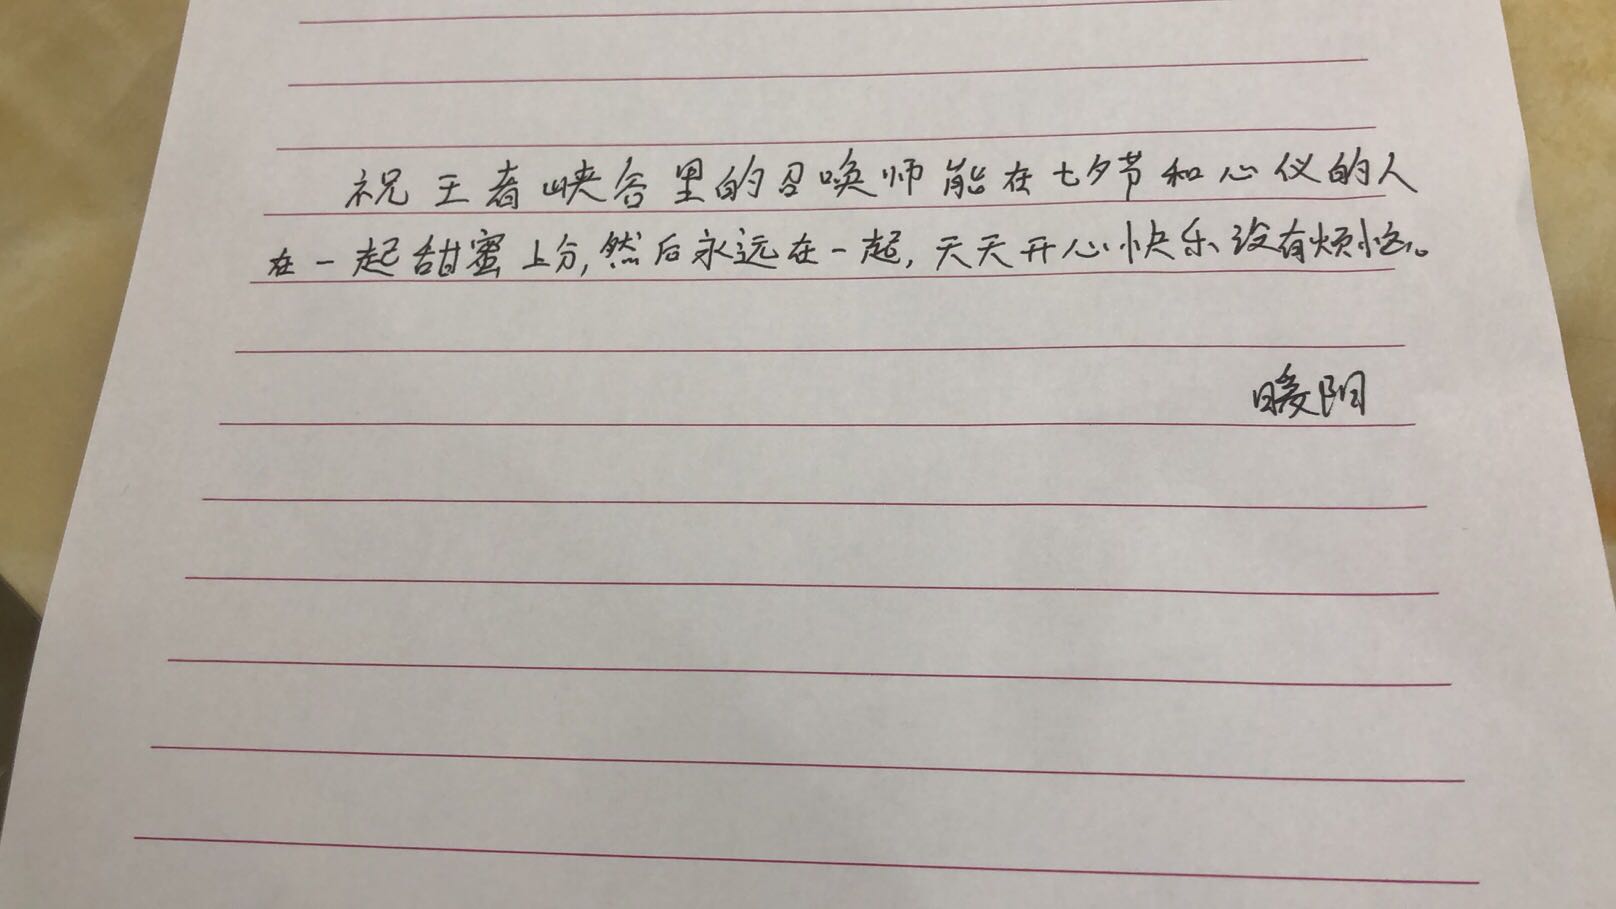 祝王者峡谷里的召唤师能在七夕节和心仪的人
在一起甜蜜上分,然后永远在一起,天天开心快乐没有烦恼。
暖阳